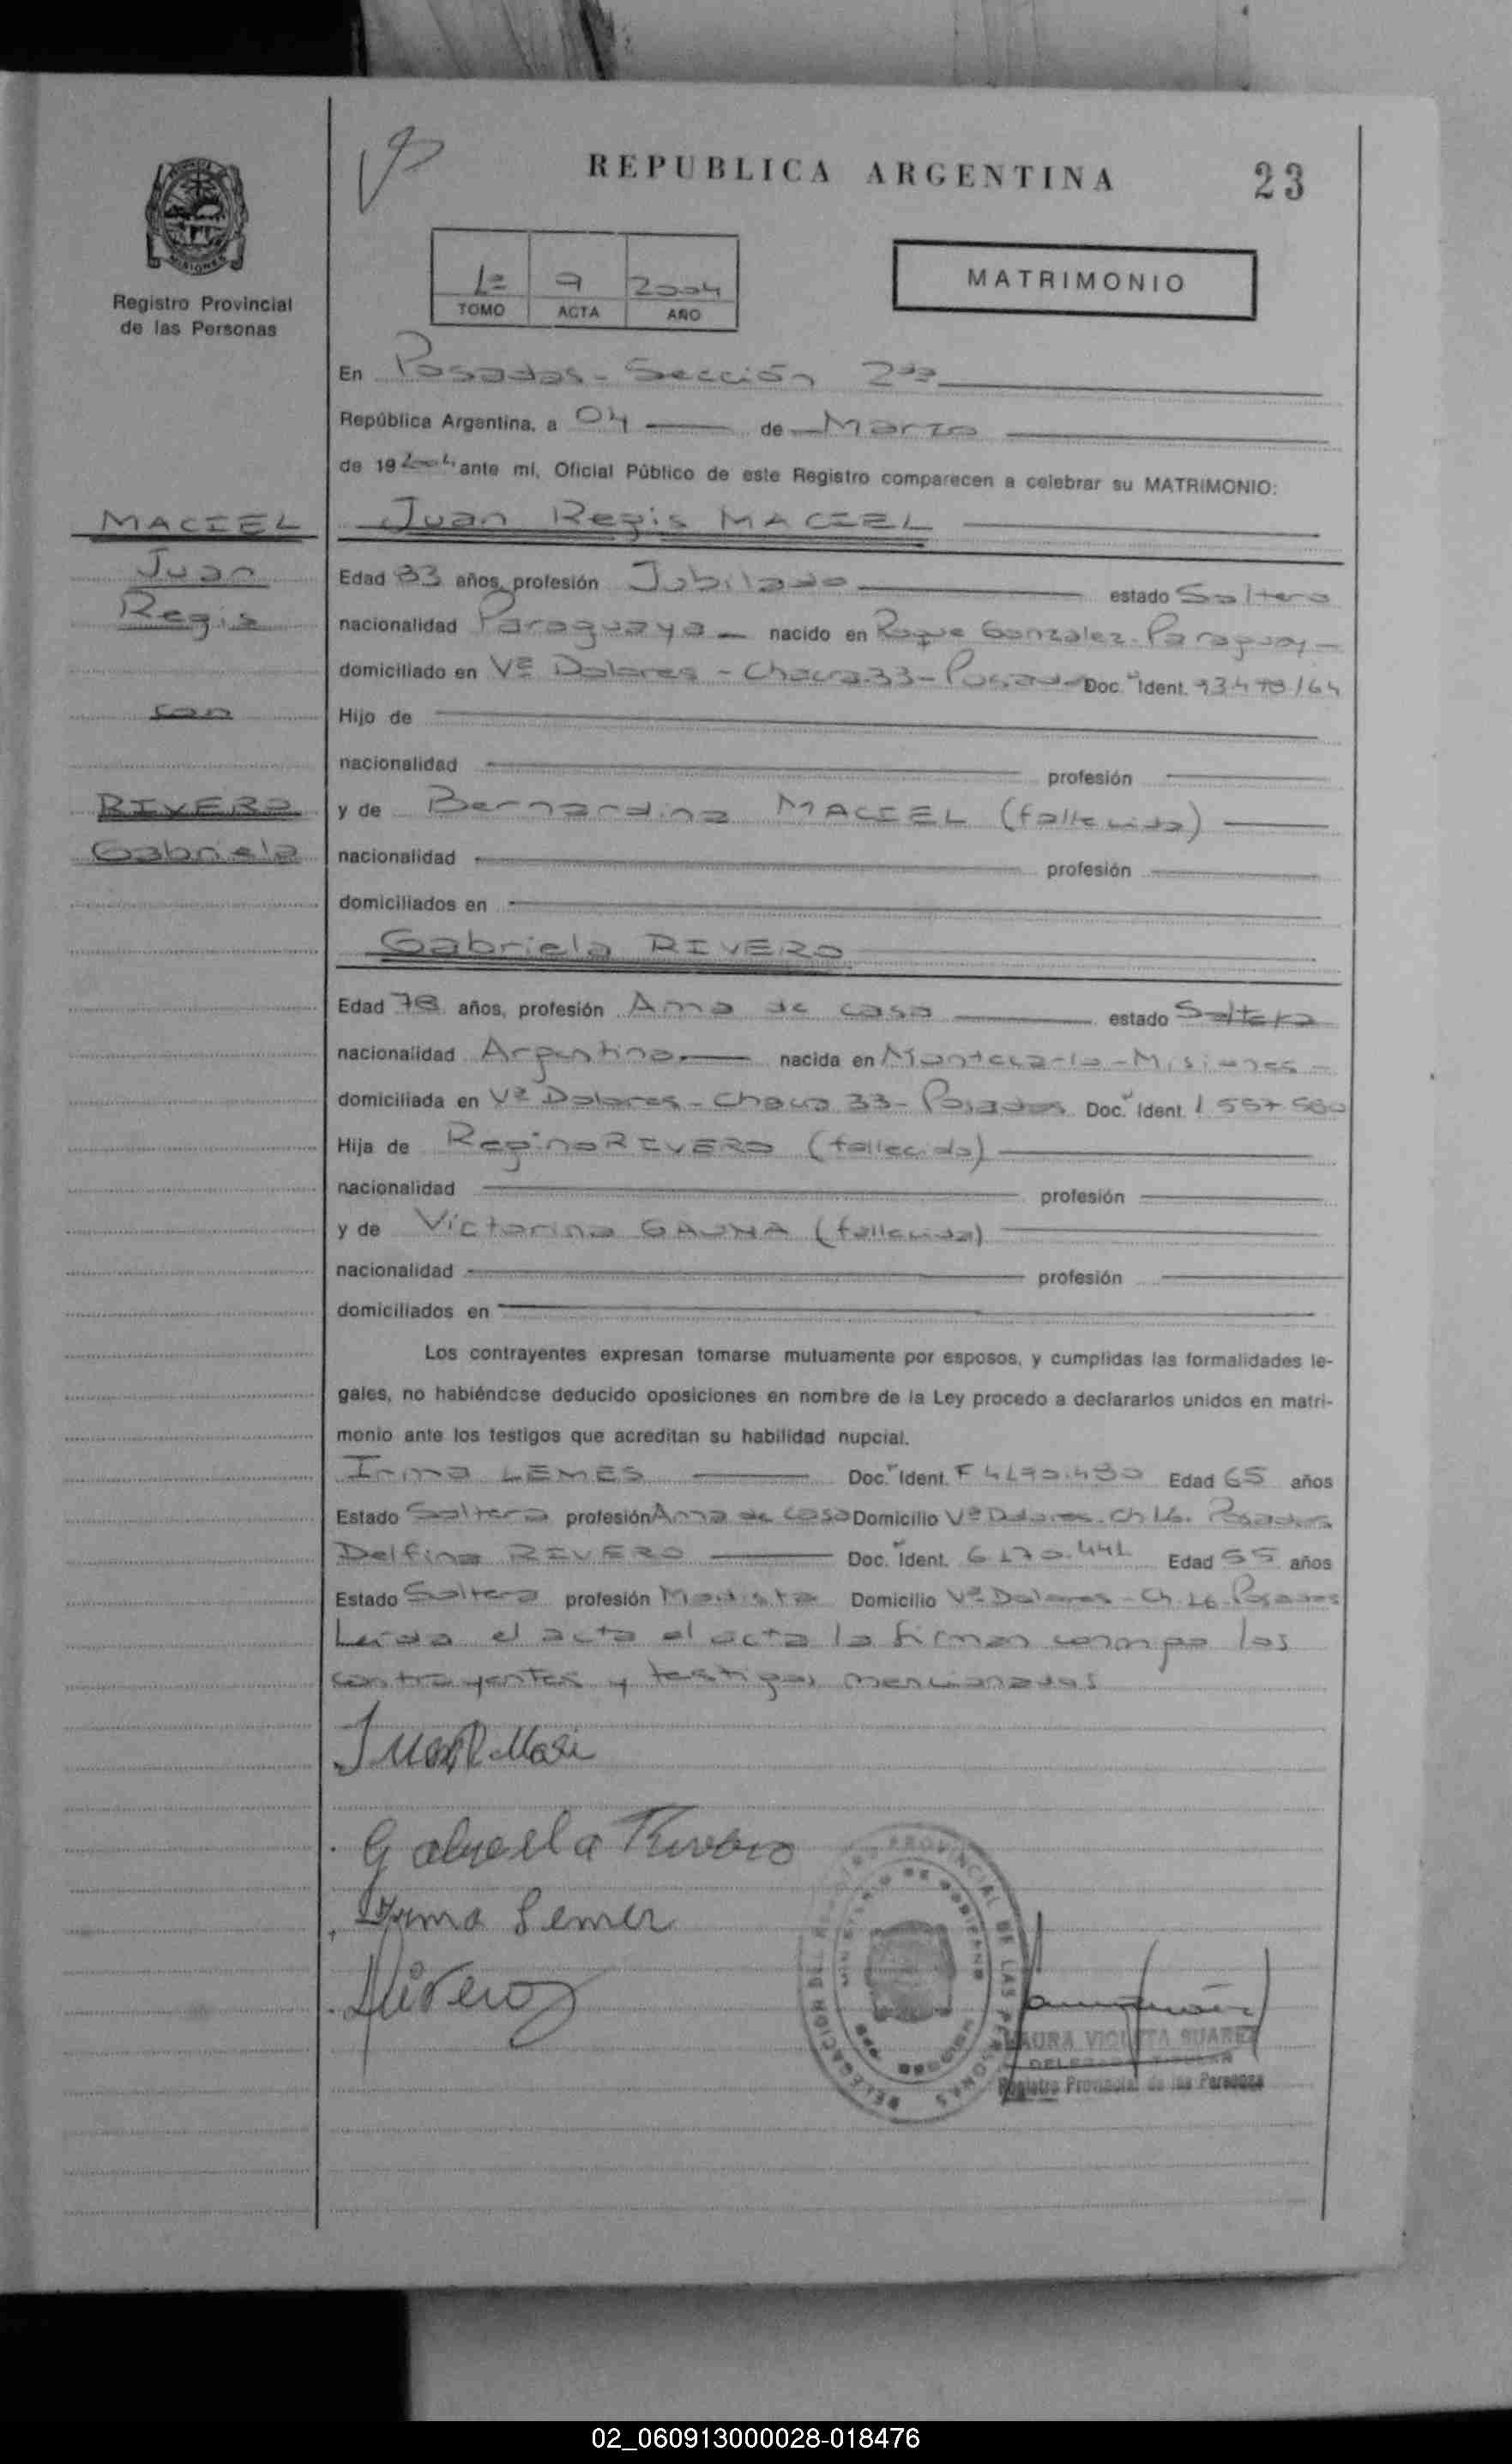 REPUBLICA ARGENTINA
23
MISIONES
Registro Provincial
de las Personas
1º 9 2004
TOMO ACTA AÑO
MATRIMONIO
En Posadas - Sección 2da
República Argentina, a 04 de Marzo
de 19 2004 ante mí, Oficial Público de este Registro comparecen a celebrar su MATRIMONIO:
MACIEL
Juan
Regis
con
RIVERO
Gabriela
Juan Regis MACIEL
Edad 83 años, profesión Jubilado estado Soltero
nacionalidad Paraguaya nacido en Roque Gonzalez - Paraguay -
domiciliado en Vª Dolores - Chacra 33 - Posadas Doc. Ident.
Hijo de
nacionalidad profesión
y de Bernardina MACIEL (fallecida)
nacionalidad profesión
domiciliados en
Gabriela RIVERO
Edad 78 años, profesión Ama de casa estado Soltera
nacionalidad Argentina nacida en Montecarlo - Misiones -
domiciliada en Vª Dolores - Chacra 33 - Posadas Doc. Ident.
Hija de Regino RIVERO (fallecido)
nacionalidad profesión
y de Victorina GAUNA (fallecida)
nacionalidad profesión
domiciliados en
Los contrayentes expresan tomarse mutuamente por esposos, y cumplidas las formalidades le-
gales, no habiéndose deducido oposiciones en nombre de la Ley procedo a declararlos unidos en matri-
monio ante los testigos que acreditan su habilidad nupcial.
Irma LEMES Doc. Ident. Edad 65 años
Estado Soltera profesión Ama de casa Domicilio Vª Dolores. Ch 16. Posadas
Delfina RIVERO Doc. Ident. 6.170.441 Edad 55 años
Estado Soltera profesión Modista Domicilio Vª Dolores - Ch. 16 - Posadas
Leída el acta el acta la firman conmigo los
contrayentes y testigos mencionados
Gabriela Rivero
Irma Lemes
Rivero
DELEGACION DEL REGISTRO PROVINCIAL DE LAS PERSONAS
MINISTERIO DE GOBIERNO
LAURA VIOLETA SUAREZ
DELEGADA TITULAR
Registro Provincial de las Personas
02_060913000028-018476